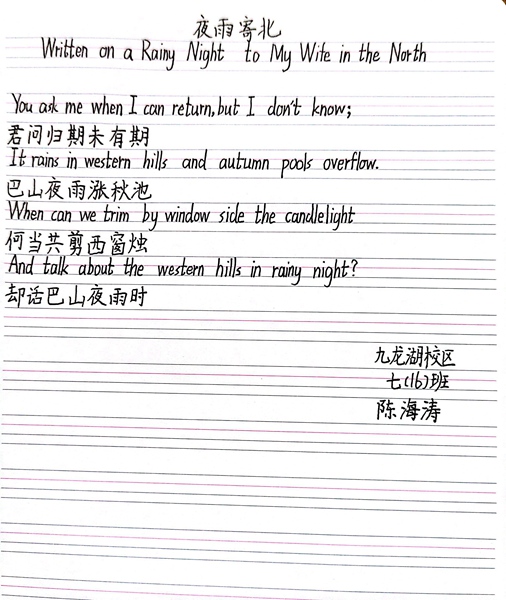 夜雨寄北
Written on a Rainy Night to My Wife in the North
You ask me when I can return, but I don't know;
君问归期未有期
It rains in western hills and autumn pools overflow.
巴山夜雨涨秋池
When can we trim by window side the candlelight
何当共剪西窗烛
And talk about the western hills in rainy night?
却话巴山夜雨时
九龙湖校区
七(16)班
陈海涛